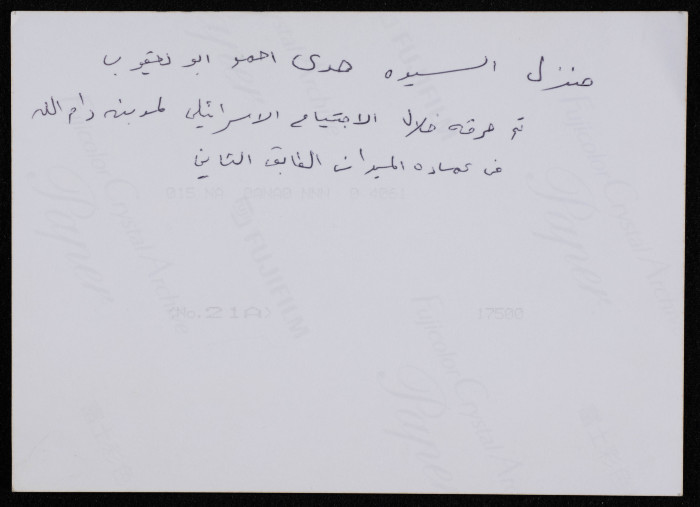 منزل السيده هدى احمد ابو يعقوب
تم حرقه خلال الاجتياح الاسرائيلي لمدينة رام الله
في عماره الميدان الطابق الثاني
FUJIFILM
Fujicolor Crystal Archive
Paper
<No.21A>
17500